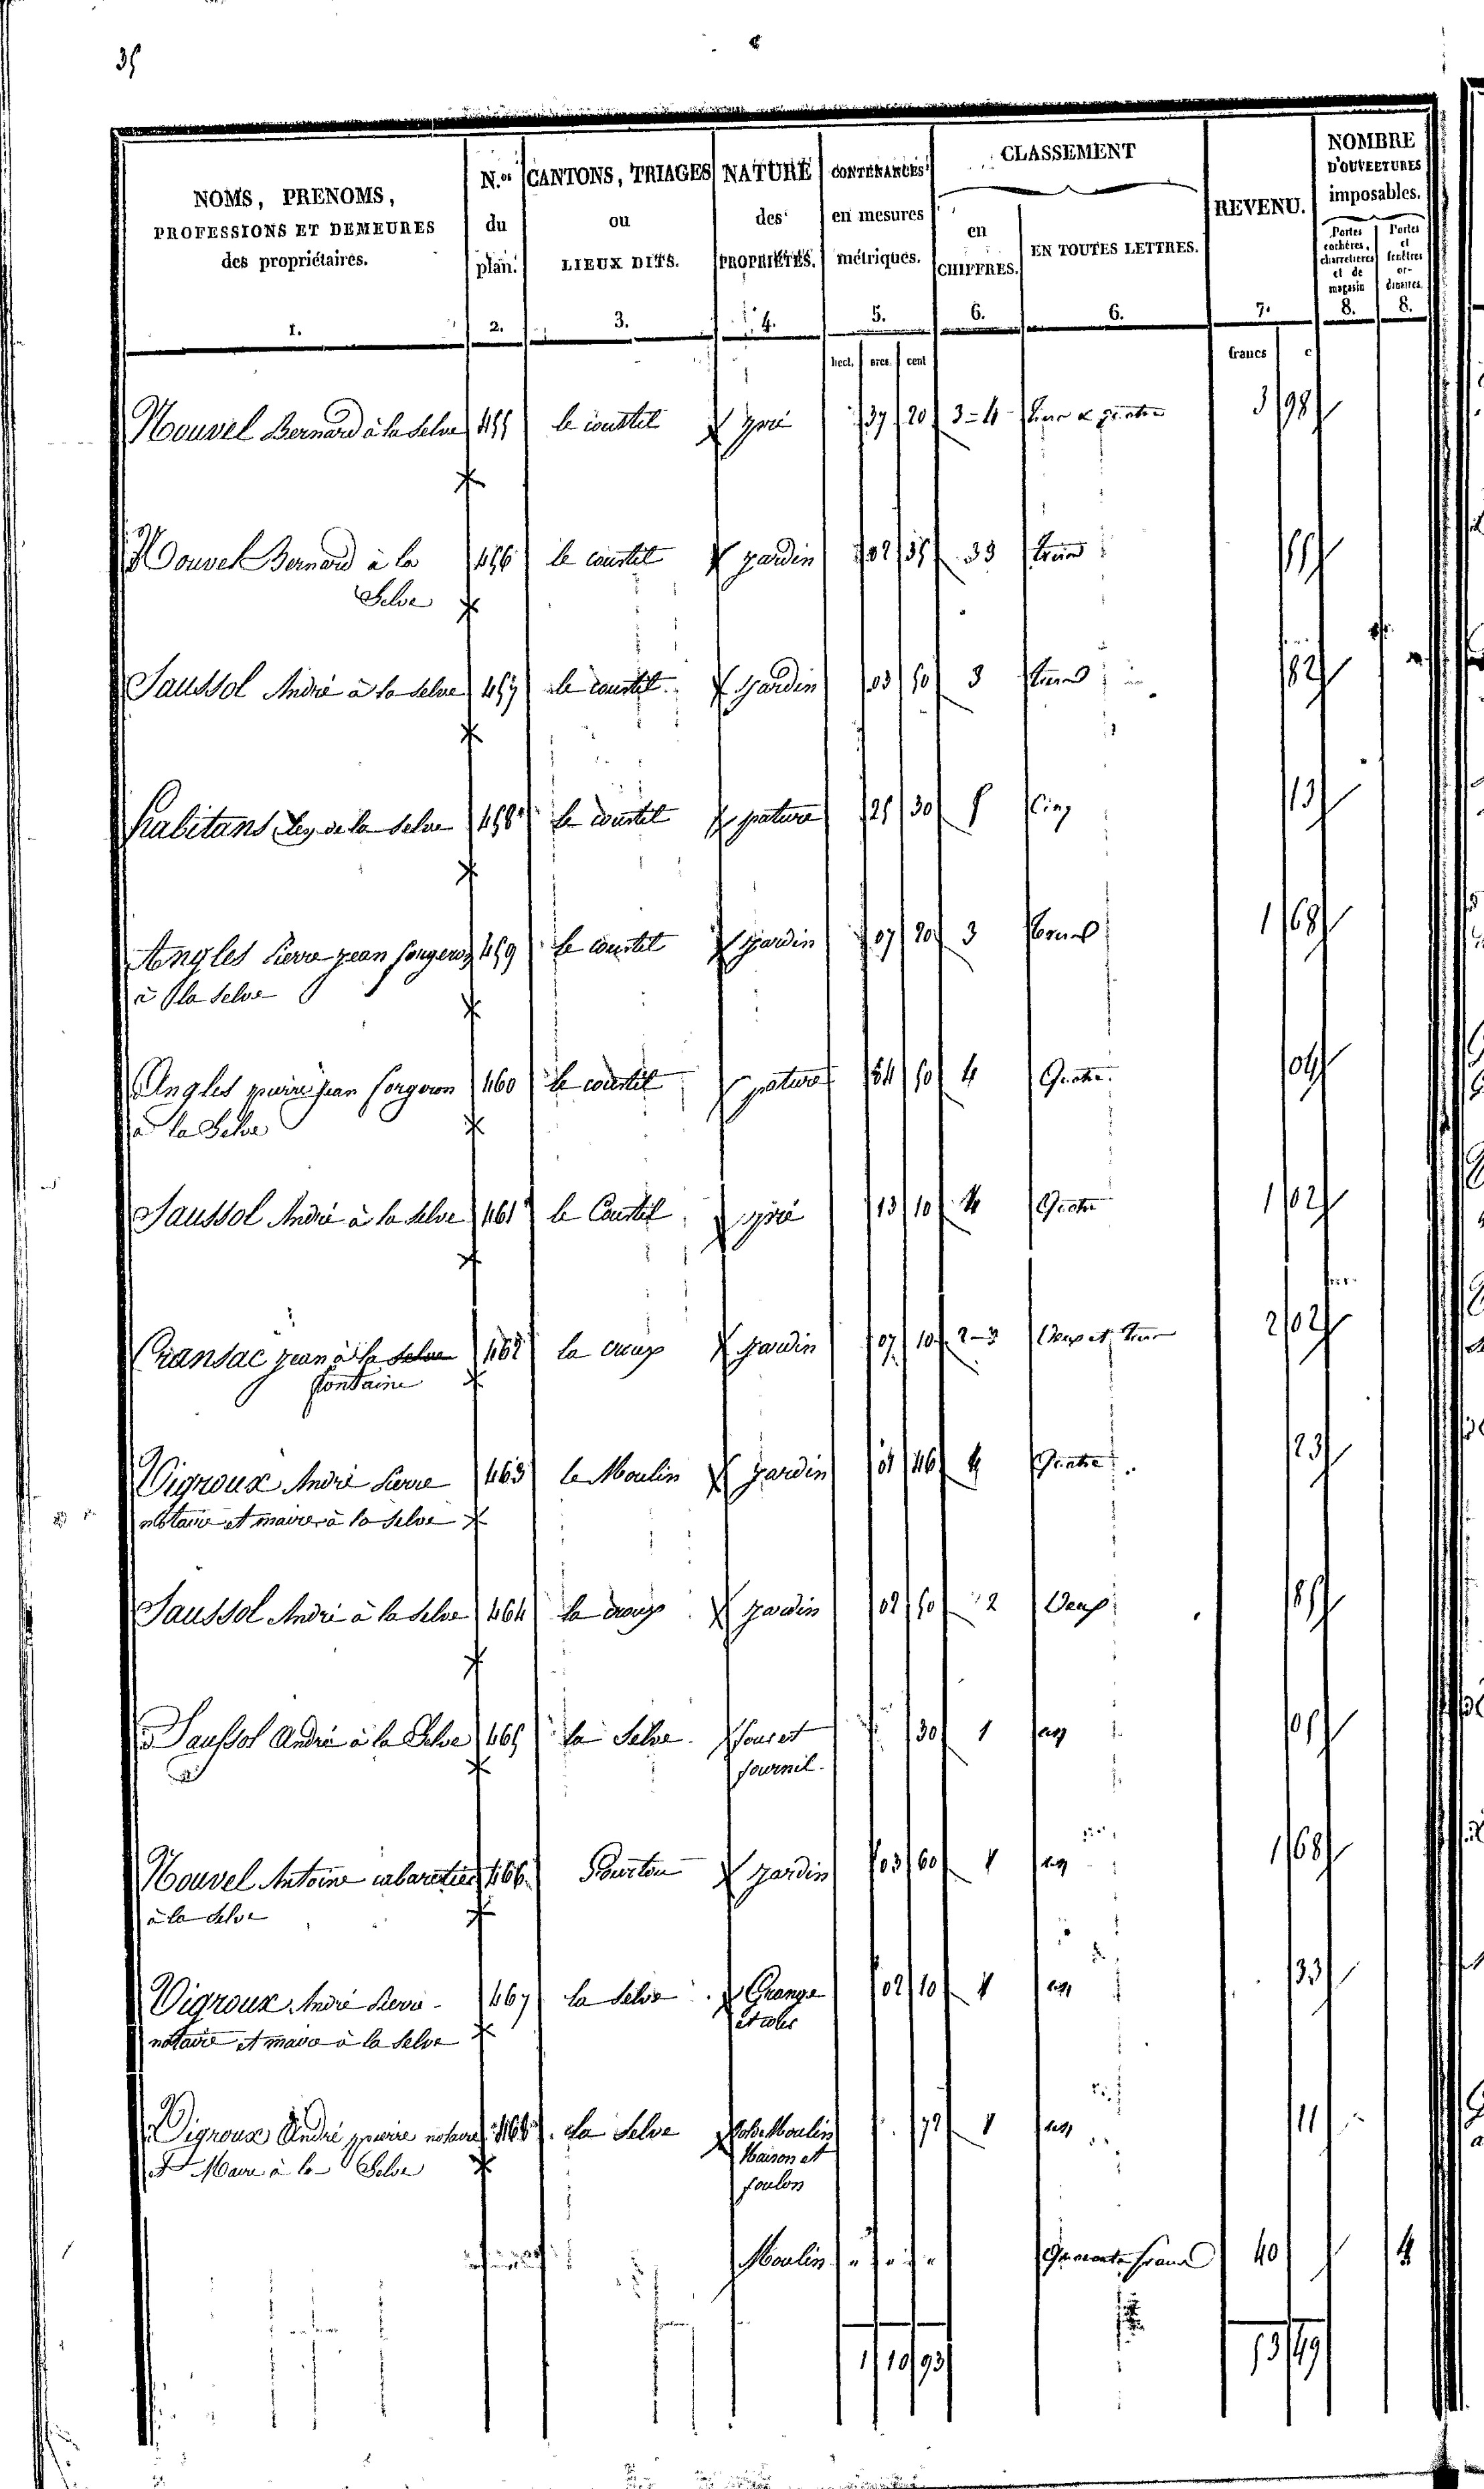 35
NOMS, PRENOMS,
PROFESSIONS ET DEMEURES
des propriétaires.
1.
N.os
du
plan.
2.
CANTONS, TRIAGES
ou
LIEUX DITS.
3.
NATURE
des
PROPRIÉTÉS.
4.
CONTENANCES
en mesures
métriques.
5.
CLASSEMENT
en
CHIFFRES.
6.
EN TOUTES LETTRES.
6.
REVENU.
7.
NOMBRE
D'OUVERTURES
imposables.
Portes
cochères,
charretières
et de
magasin
8.
Portes
et
fenêtres
or-
dinaires.
8.
hect. ares. cent
francs c
Nouvel Bernard à la Selve 455 le coustel pré 37 20 3=4 3 98
Nouvel Bernard à la 456 le coustel jardin 02 35 33 55
Selve
Saussol André à la selve 457 le coustel jardin 03 50 3 82
habitans les de la Selve 458 le coustel pature 25 30 5 Cinq 13
Angles Pierre jean forgeron 459 le coustel jardin 07 20 3 1 68
à la selve
Angles pierre jean forgeron 460 le coustel pature 50 4 Quatre 04
à la Selve
Saussol André à la Selve 461 le Coustel pré 13 10 4 Quatre 1 02
Cransac jean à la selve 462 la croup jardin 07 10 2-3 Deux et trois 2 02
fontaine
Vigroux André Pierre 463 le Moulin jardin 01 46 4 Quatre 23
notaire et maire à la selve
Saussol André à la Selve 464 jardin 02 50 2 Deux 85
Saussol André à la Selve 465 la Selve four et 30 1 un 05
fournil
Nouvel Antoine cabaretier 466 jardin 03 60 1 un 1 68
à la selve
Vigroux André Pierre 467 la Selve Grange 02 10 1 un 33
étables
notaire et maire à la Selve
Vigroux André pierre notaire 468 la Selve Sol de Moulin 72 1 un 11
et Maire à la Selve Maison et
foulon
Moulin " " " Quarante francs 40 4
1 10 93 53 49